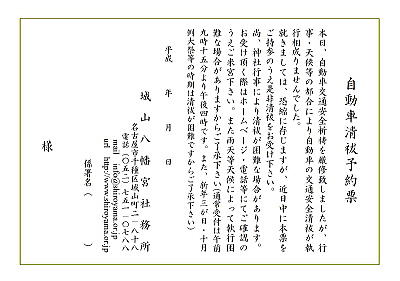 自動車清祓予約票
本日、自動車交通安全祈祷を厳修致しましたが、行
事・天候等の都合により自動車の交通安全清祓が執
行相成りませんでした。
就きましては、恐縮に存じますが、近日中に本票を
ご持参のうえ是非清祓をお受け下さい。
尚、神社行事により清祓が困難な場合があります。
お受け頂く際はホームページ・電話等にてご確認の
うえご来宮下さい。また雨天等天候によって執行困
難な場合がありますからご了承下さい（通常受付は午前
九時十五分より午後四時です。また、新年三が日・十月
例大祭等の時期は清祓が困難ですからご了承下さい）
平成　年　月　日
城山八幡宮社務所
名古屋市千種区城山町二ー八十八
電話（〇五二）七五一ー〇七八八
mail info@shiroyama.or.jp
url http://www.shiroyama.or.jp
係署名（　　）
様